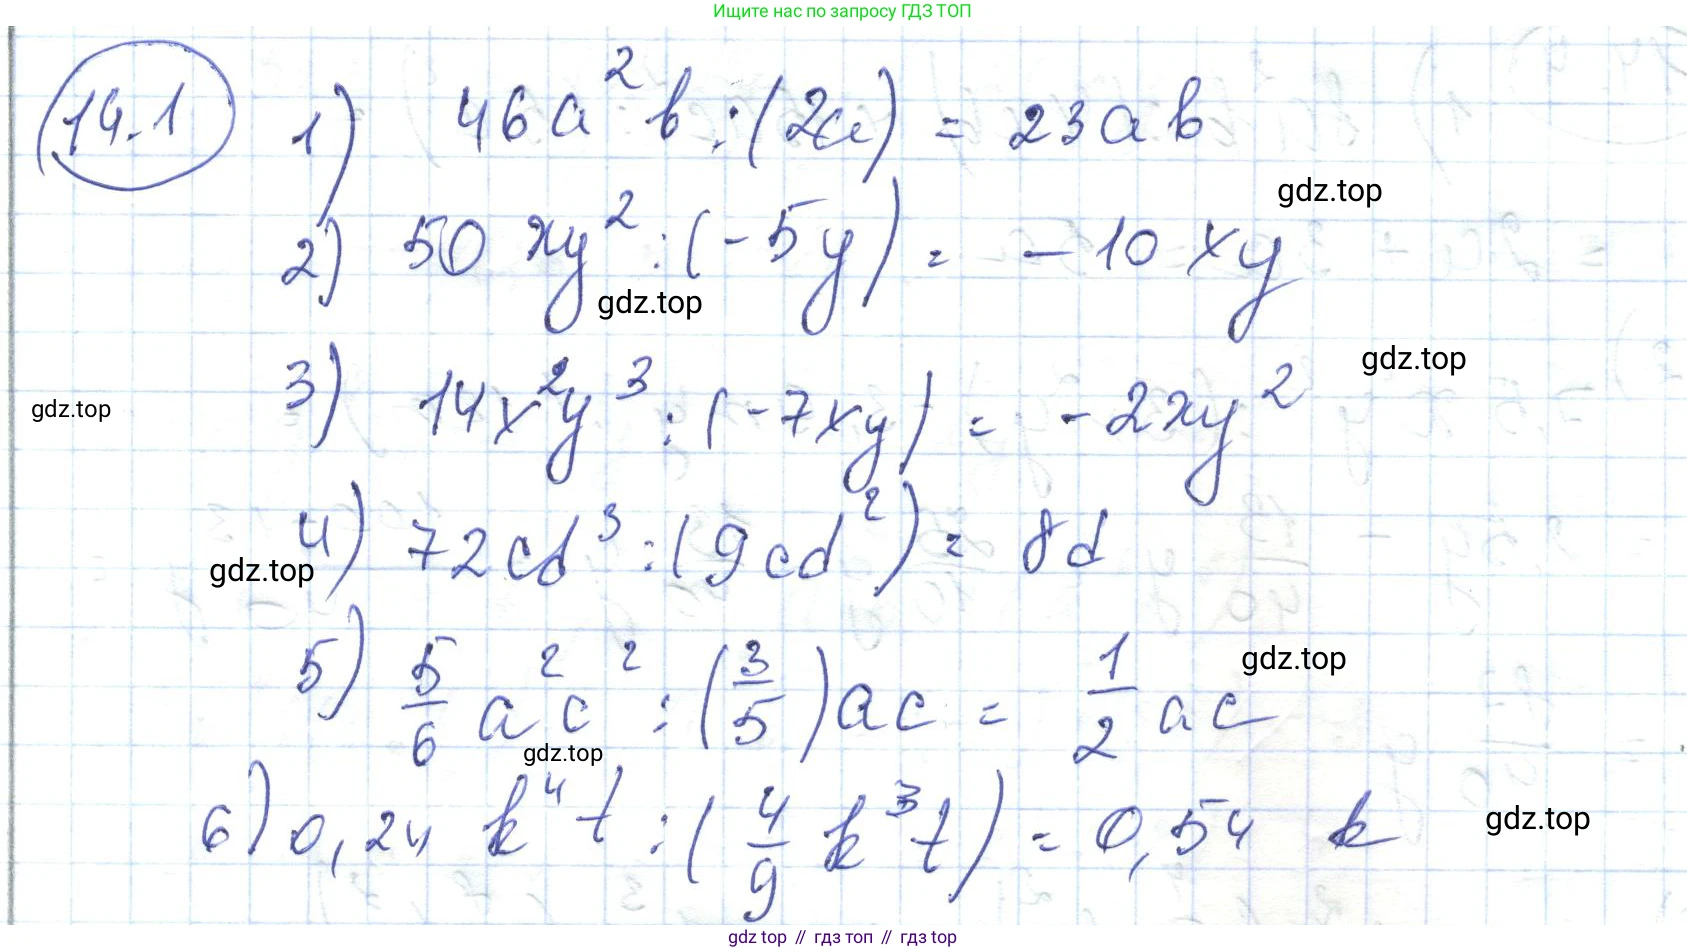 Ищите нас по запросу ГДЗ ТОП
14.1 1) 46a²b : (2a) = 23ab
gdz.top
2) 50xy² : (-5y) = -10xy
gdz.top
gdz.top
3) 14x²y³ : (-7xy) = -2xy²
gdz.top
4) 72cd³ : (9cd²) = 8d
gdz.top
5) 5/6 a²c² : (3/5)ac = 1/2 ac
gdz.top
gdz.top
6) 0,24 k⁴t : (4/9 k³t) = 0,54 k
gdz.top
gdz top // гдз топ // gdz top